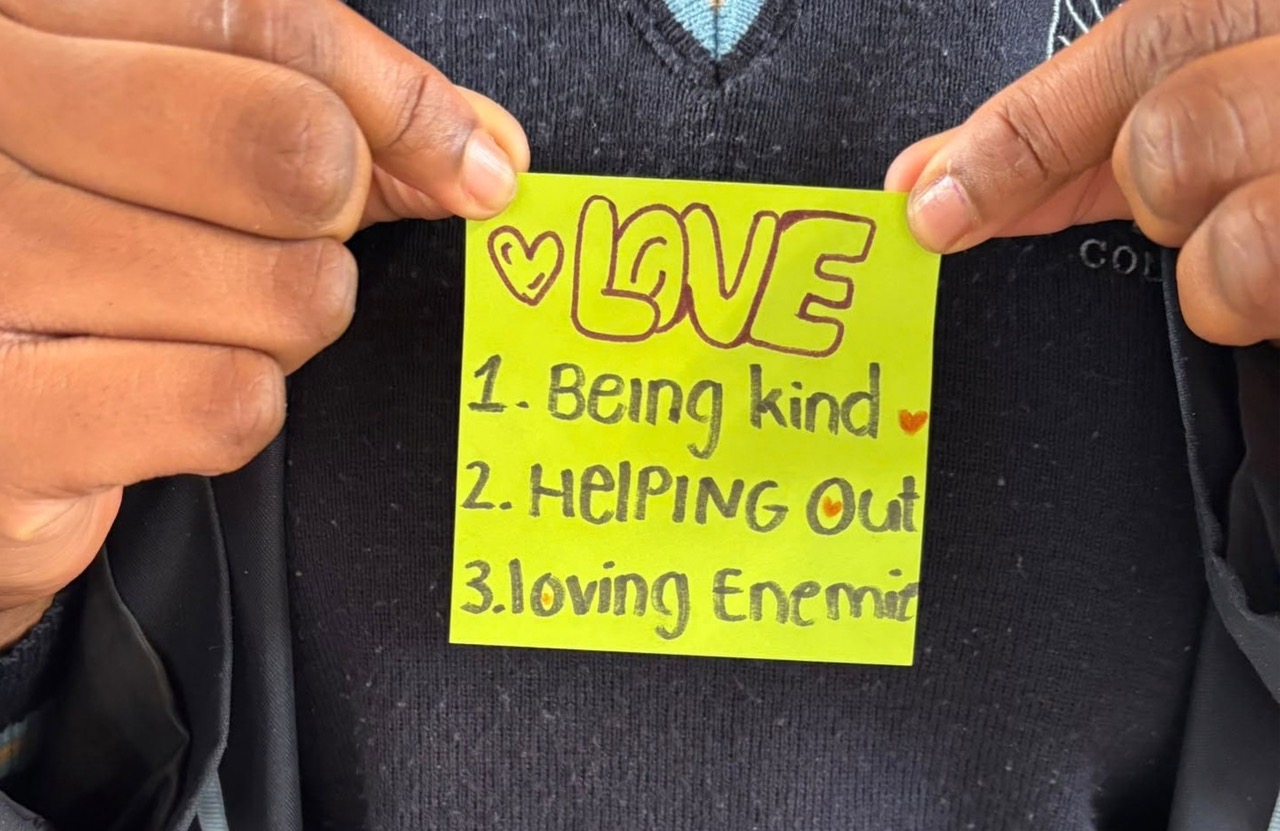 LOVE
1. Being kind
2. HElPING Out
3. loving Enemie
COL